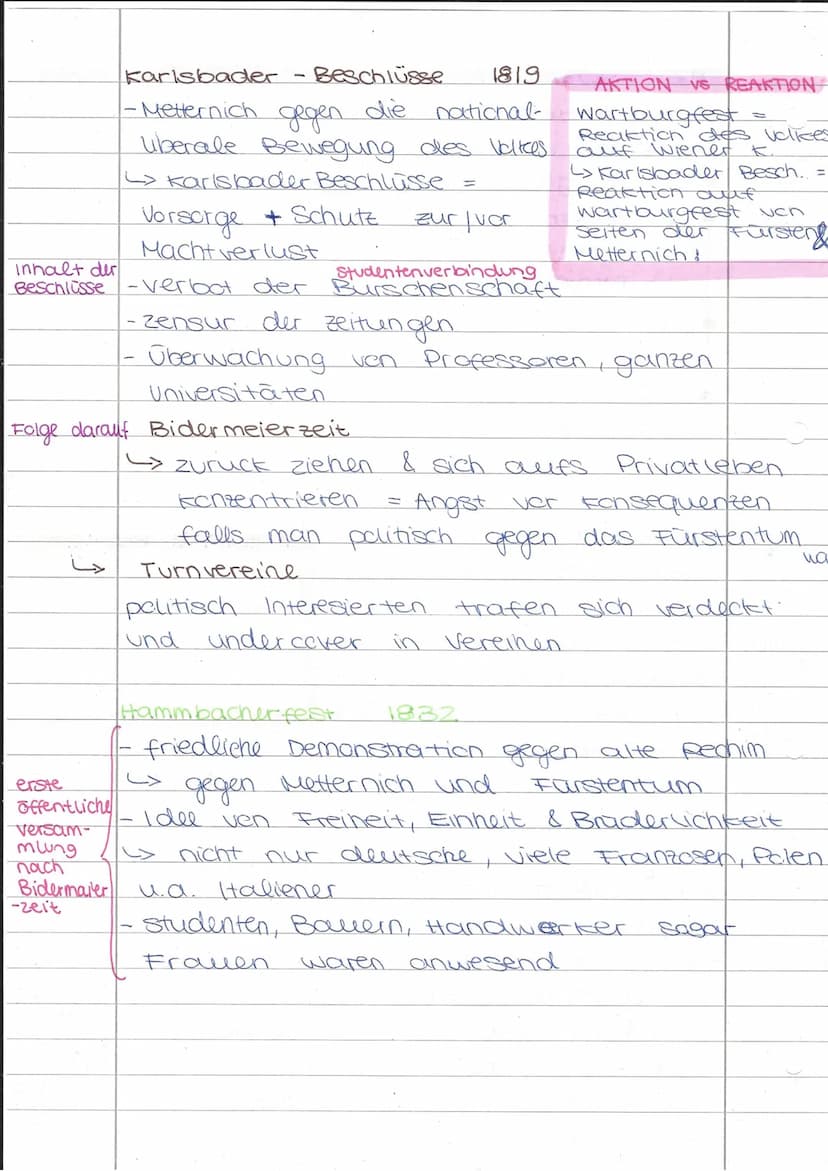 Karlsbader - Beschlüsse 1819
- Metternich gegen die national-
liberale Bewegung des Volkes
↳ Karlsbader Beschlüsse =
Vorsorge + Schutz zur/vor
Machtverlust
AKTION vs REAKTION
Wartburgfest =
Reaktion des Volkes
auf Wiener K.
↳ Karlsbader Besch. =
Reaktion auf
Wartburgfest von
seiten der Fürsten &
Metternich!
Inhalt der
Beschlüsse
Studentenverbindung
- verbot der Burschenschaft
- zensur der zeitungen
- Überwachung von Professoren, ganzen
Universitäten
Folge darauf Bidermeierzeit
↳ zurück ziehen & sich aufs Privatleben
konzentrieren = Angst vor konsequenzen
falls man politisch gegen das Fürstentum
↳ Turnvereine
politisch Interesierten trafen sich verdeckt
und undercover in Vereinen
Hammbacherfest 1832
- friedliche Demonstration gegen alte Rechim
↳ gegen Metternich und Fürstentum
- Idee von Freiheit, Einheit & Brüderlichkeit
↳ nicht nur deutsche, viele Franzosen, Polen
u.a. Italiener
- Studenten, Bauern, Handwerker sogar
Frauen waren anwesend
erste
öffentliche
versam-
mlung
nach
Bidermaier
-zeit